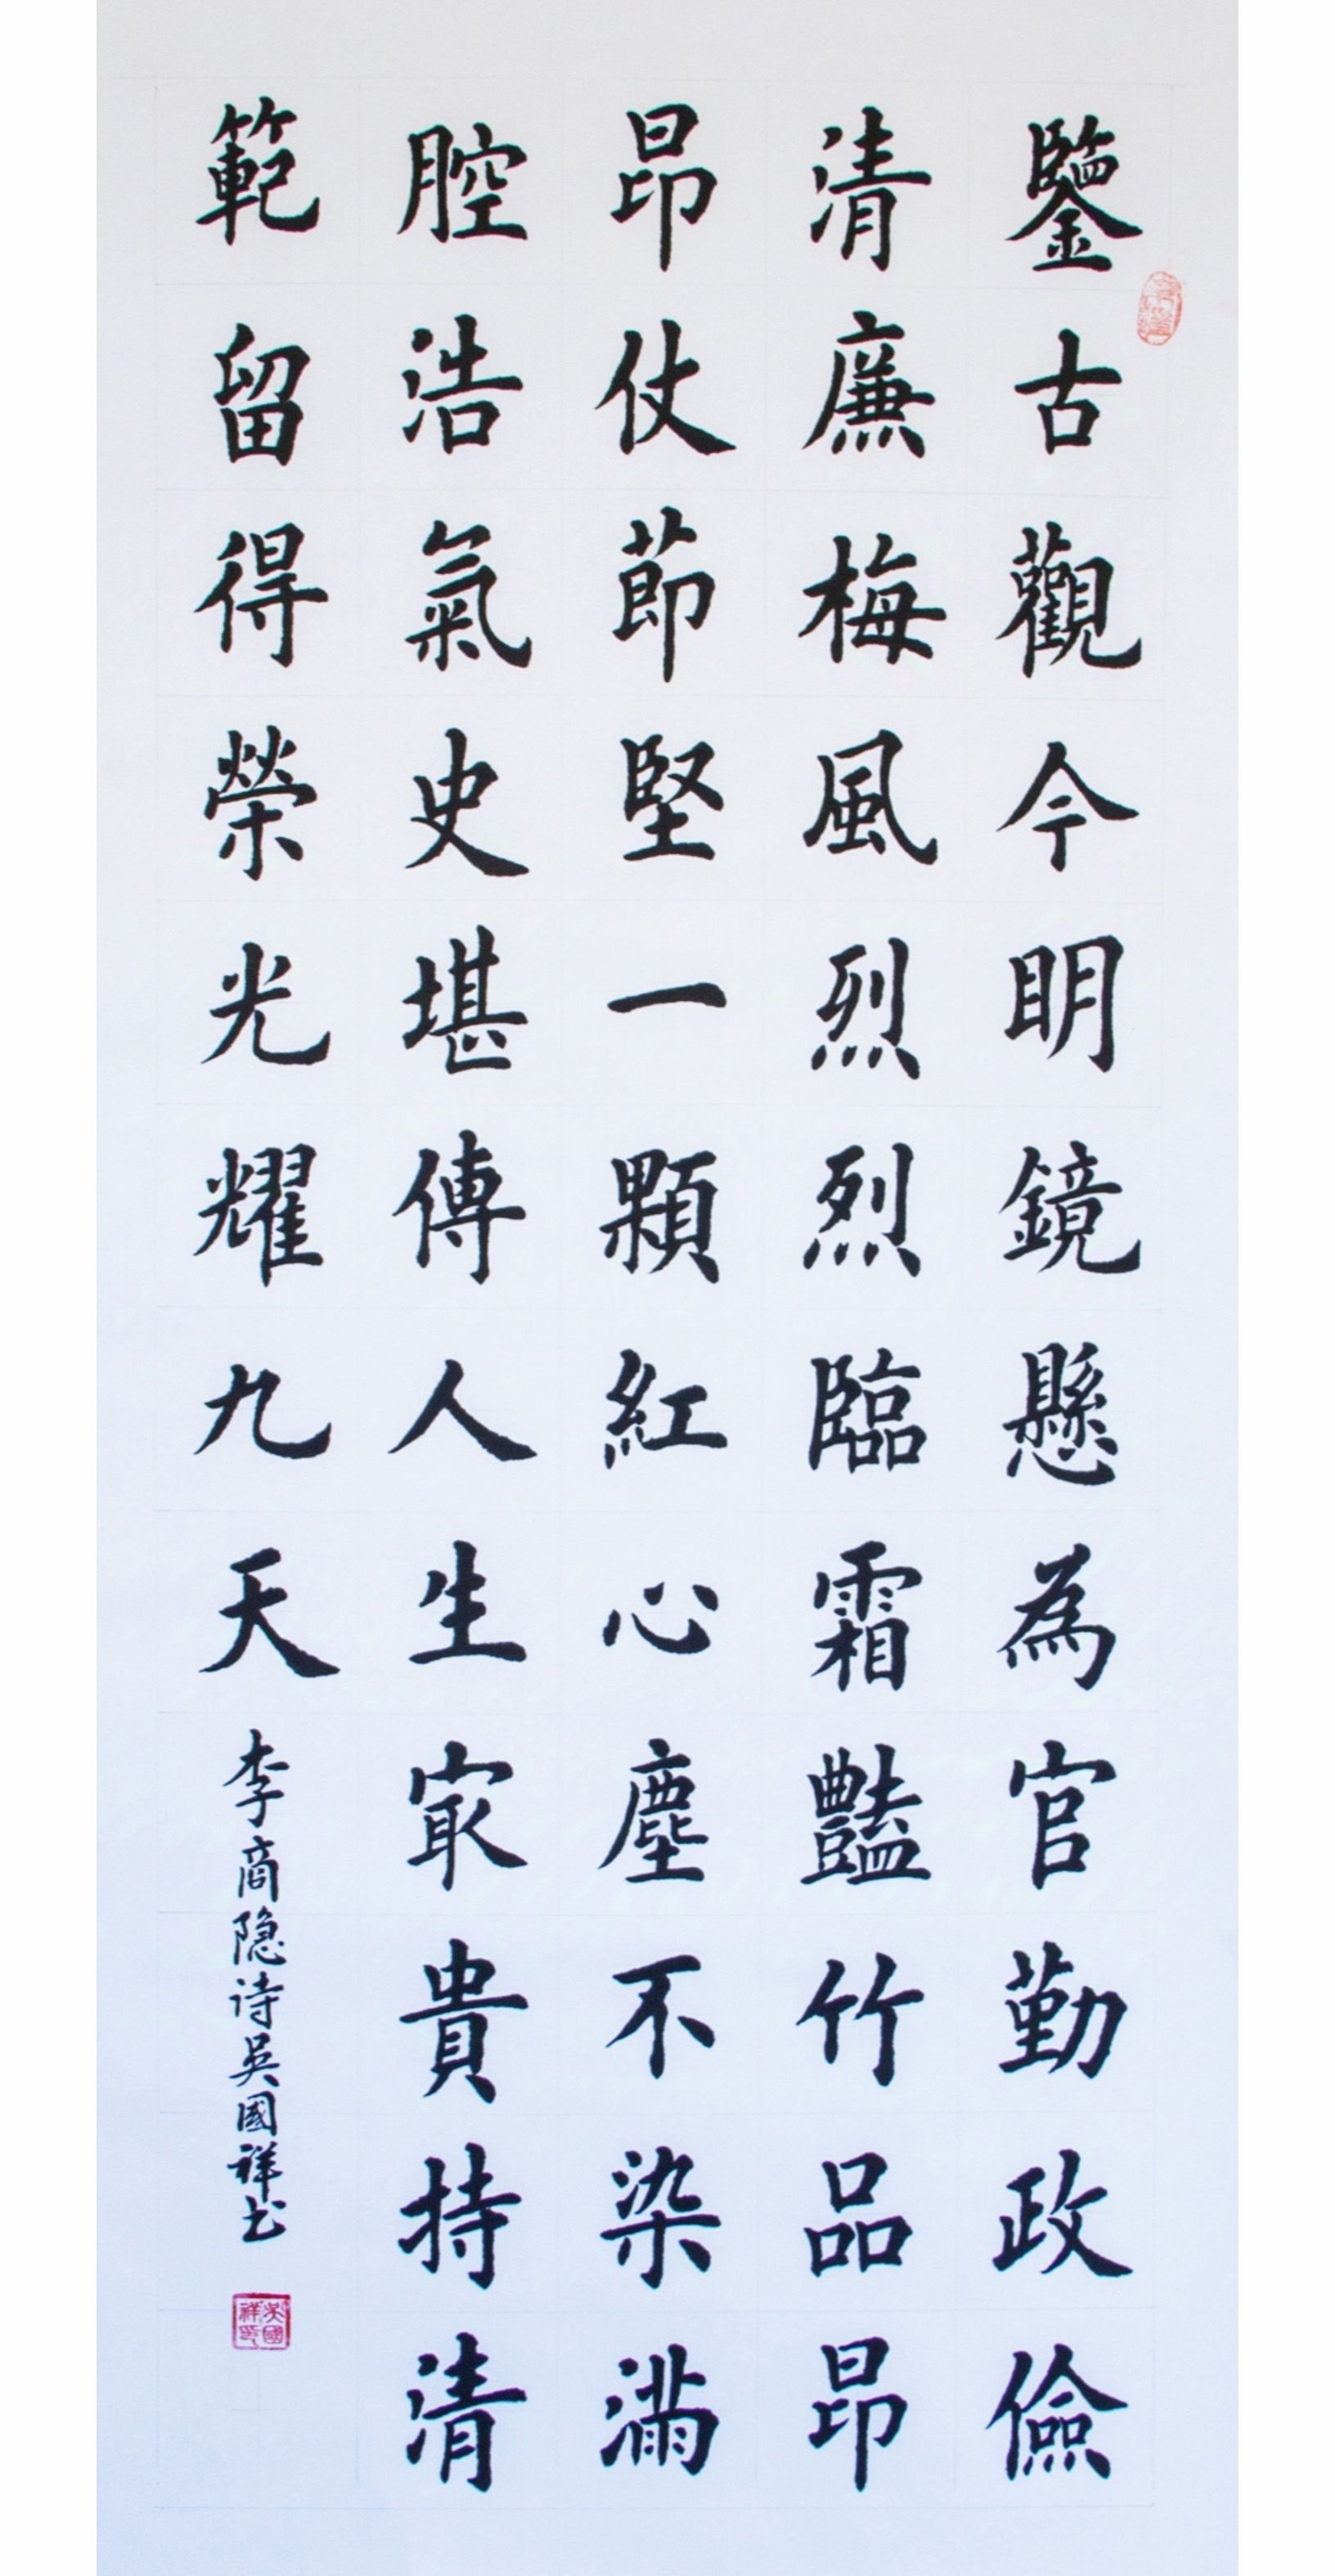 鑒古觀今明鏡懸為官勤政儉
清廉梅風烈烈臨霜豔竹品昂
昂仗節堅一顆紅心塵不染滿
腔浩氣史堪傳人生冣貴持清
範留得榮光耀九天
李商隐诗吳國祥书
吳國祥印